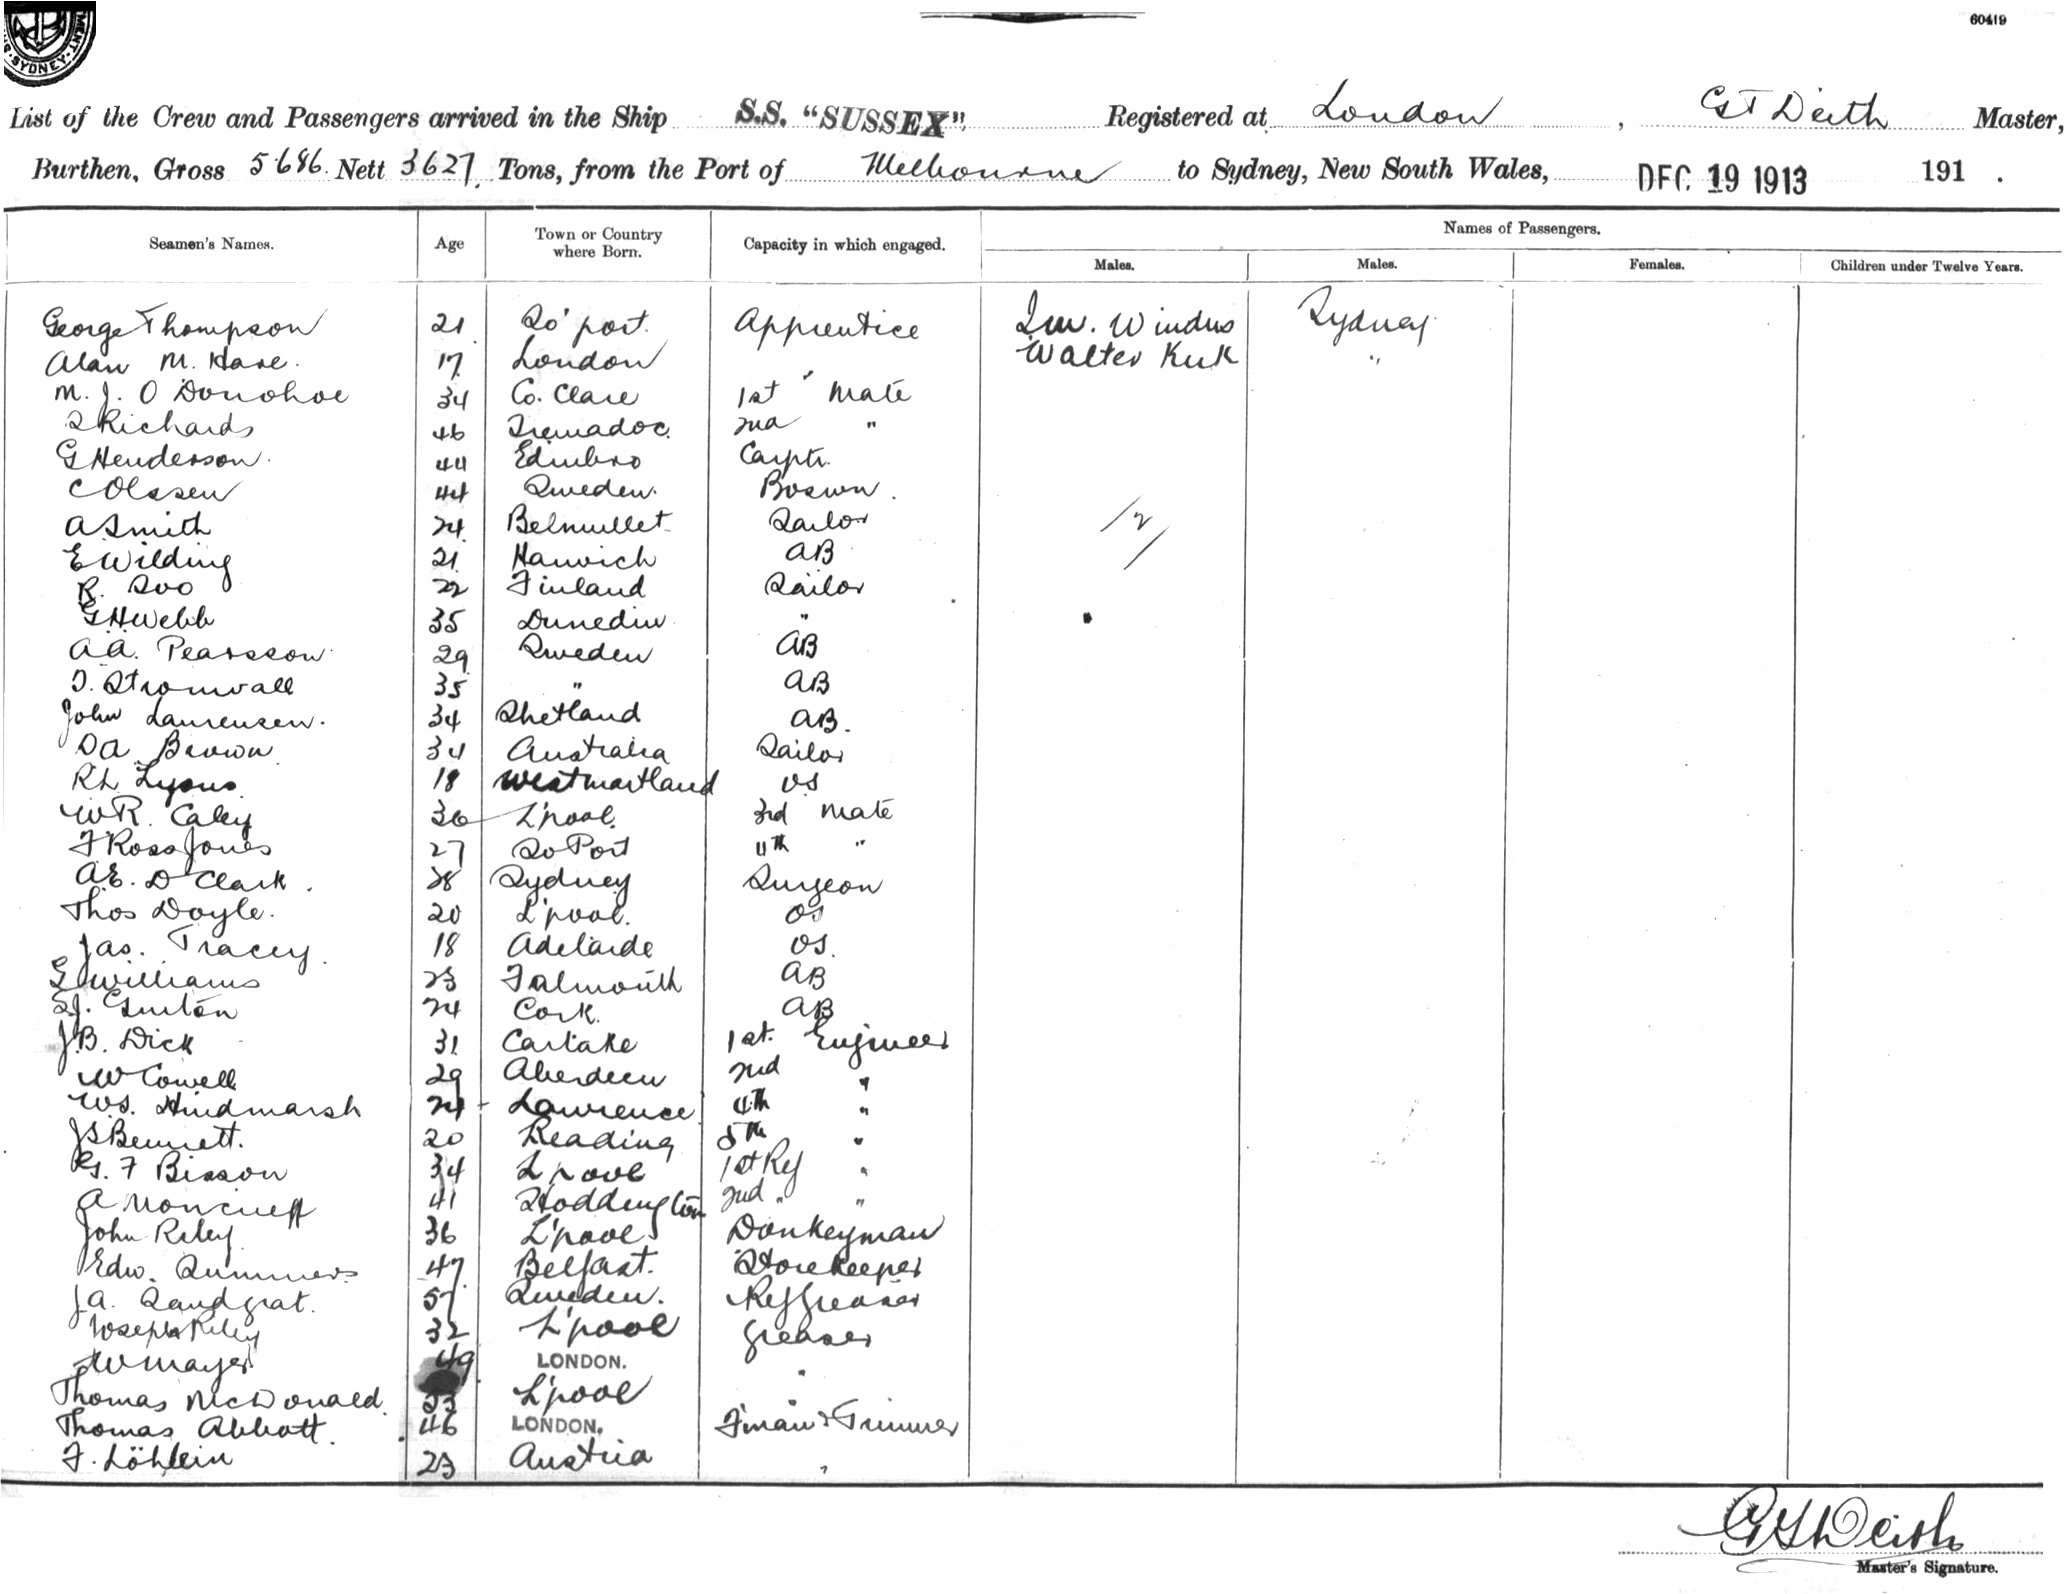 MENT
SYDNEY
60419
List of the Crew and Passengers arrived in the Ship S.S. "SUSSEX" Registered at London, G T Deith Master,
Burthen, Gross 5686. Nett 3627. Tons, from the Port of Melbourne to Sydney, New South Wales, DEC 19 1913 191 .
Seamen's Names. Age Town or Country where Born. Capacity in which engaged. Names of Passengers.
Males. Males. Females. Children under Twelve Years.
George Thompson 21 So'port. Apprentice Windus Sydney
Alan M. Hase. 17 London " Walter Kirk "
M. J. O Donohoe 34 Co. Clare 1st Mate
Richards 46 Tremadoc. 2nd "
G Henderson. 44 Edinbro Carptr.
C Olssen 44 Sweden. Boswn.
A Smith 24 Belmullet Sailor 2
E Wilding 21 Harwich AB
R. Soo 22 Finland Sailor
G H Webb 35 Dunedin "
A.A. Pearsson 29 Sweden AB
Stromvall 35 " AB
John Laurensen. 34 Shetland AB.
D A Brown 34 Australia Sailor
R L Lyons 18 Westmorland OS
W R. Caley 36 L'pool. 3rd Mate
F Ross Jones 27 So Port 4th "
A.E. D Clark. 28 Sydney Surgeon
Thos Doyle. 20 L'pool. OS
Jas. Tracey. 18 Adelaide OS.
Williams 23 Falmouth AB
24 Cork. AB
J.B. Dick 31 Carlake 1st. Engineer
W Cowell 29 Aberdeen 2nd "
W.S. Hindmarsh 24 Lawrence 4th "
J S Bennett. 20 Reading 5th "
G. F Bisson 34 L'pool 1st Rfg "
A Moncrieff 41 Stoddington 2nd " "
John Riley 36 L'pool Donkeyman
Edw. Summers 47 Belfast. Storekeeper
J A. Sandgrat. 57 Sweden. Rfg Greaser
Joseph Riley 32 L'pool Greaser
W Mayer 49 LONDON. "
Thomas McDonald. 23 L'pool
Thomas Abbott. 46 LONDON. F'man & Trimmer
F. Löhlein 23 Austria "
G T Deith
Master's Signature.